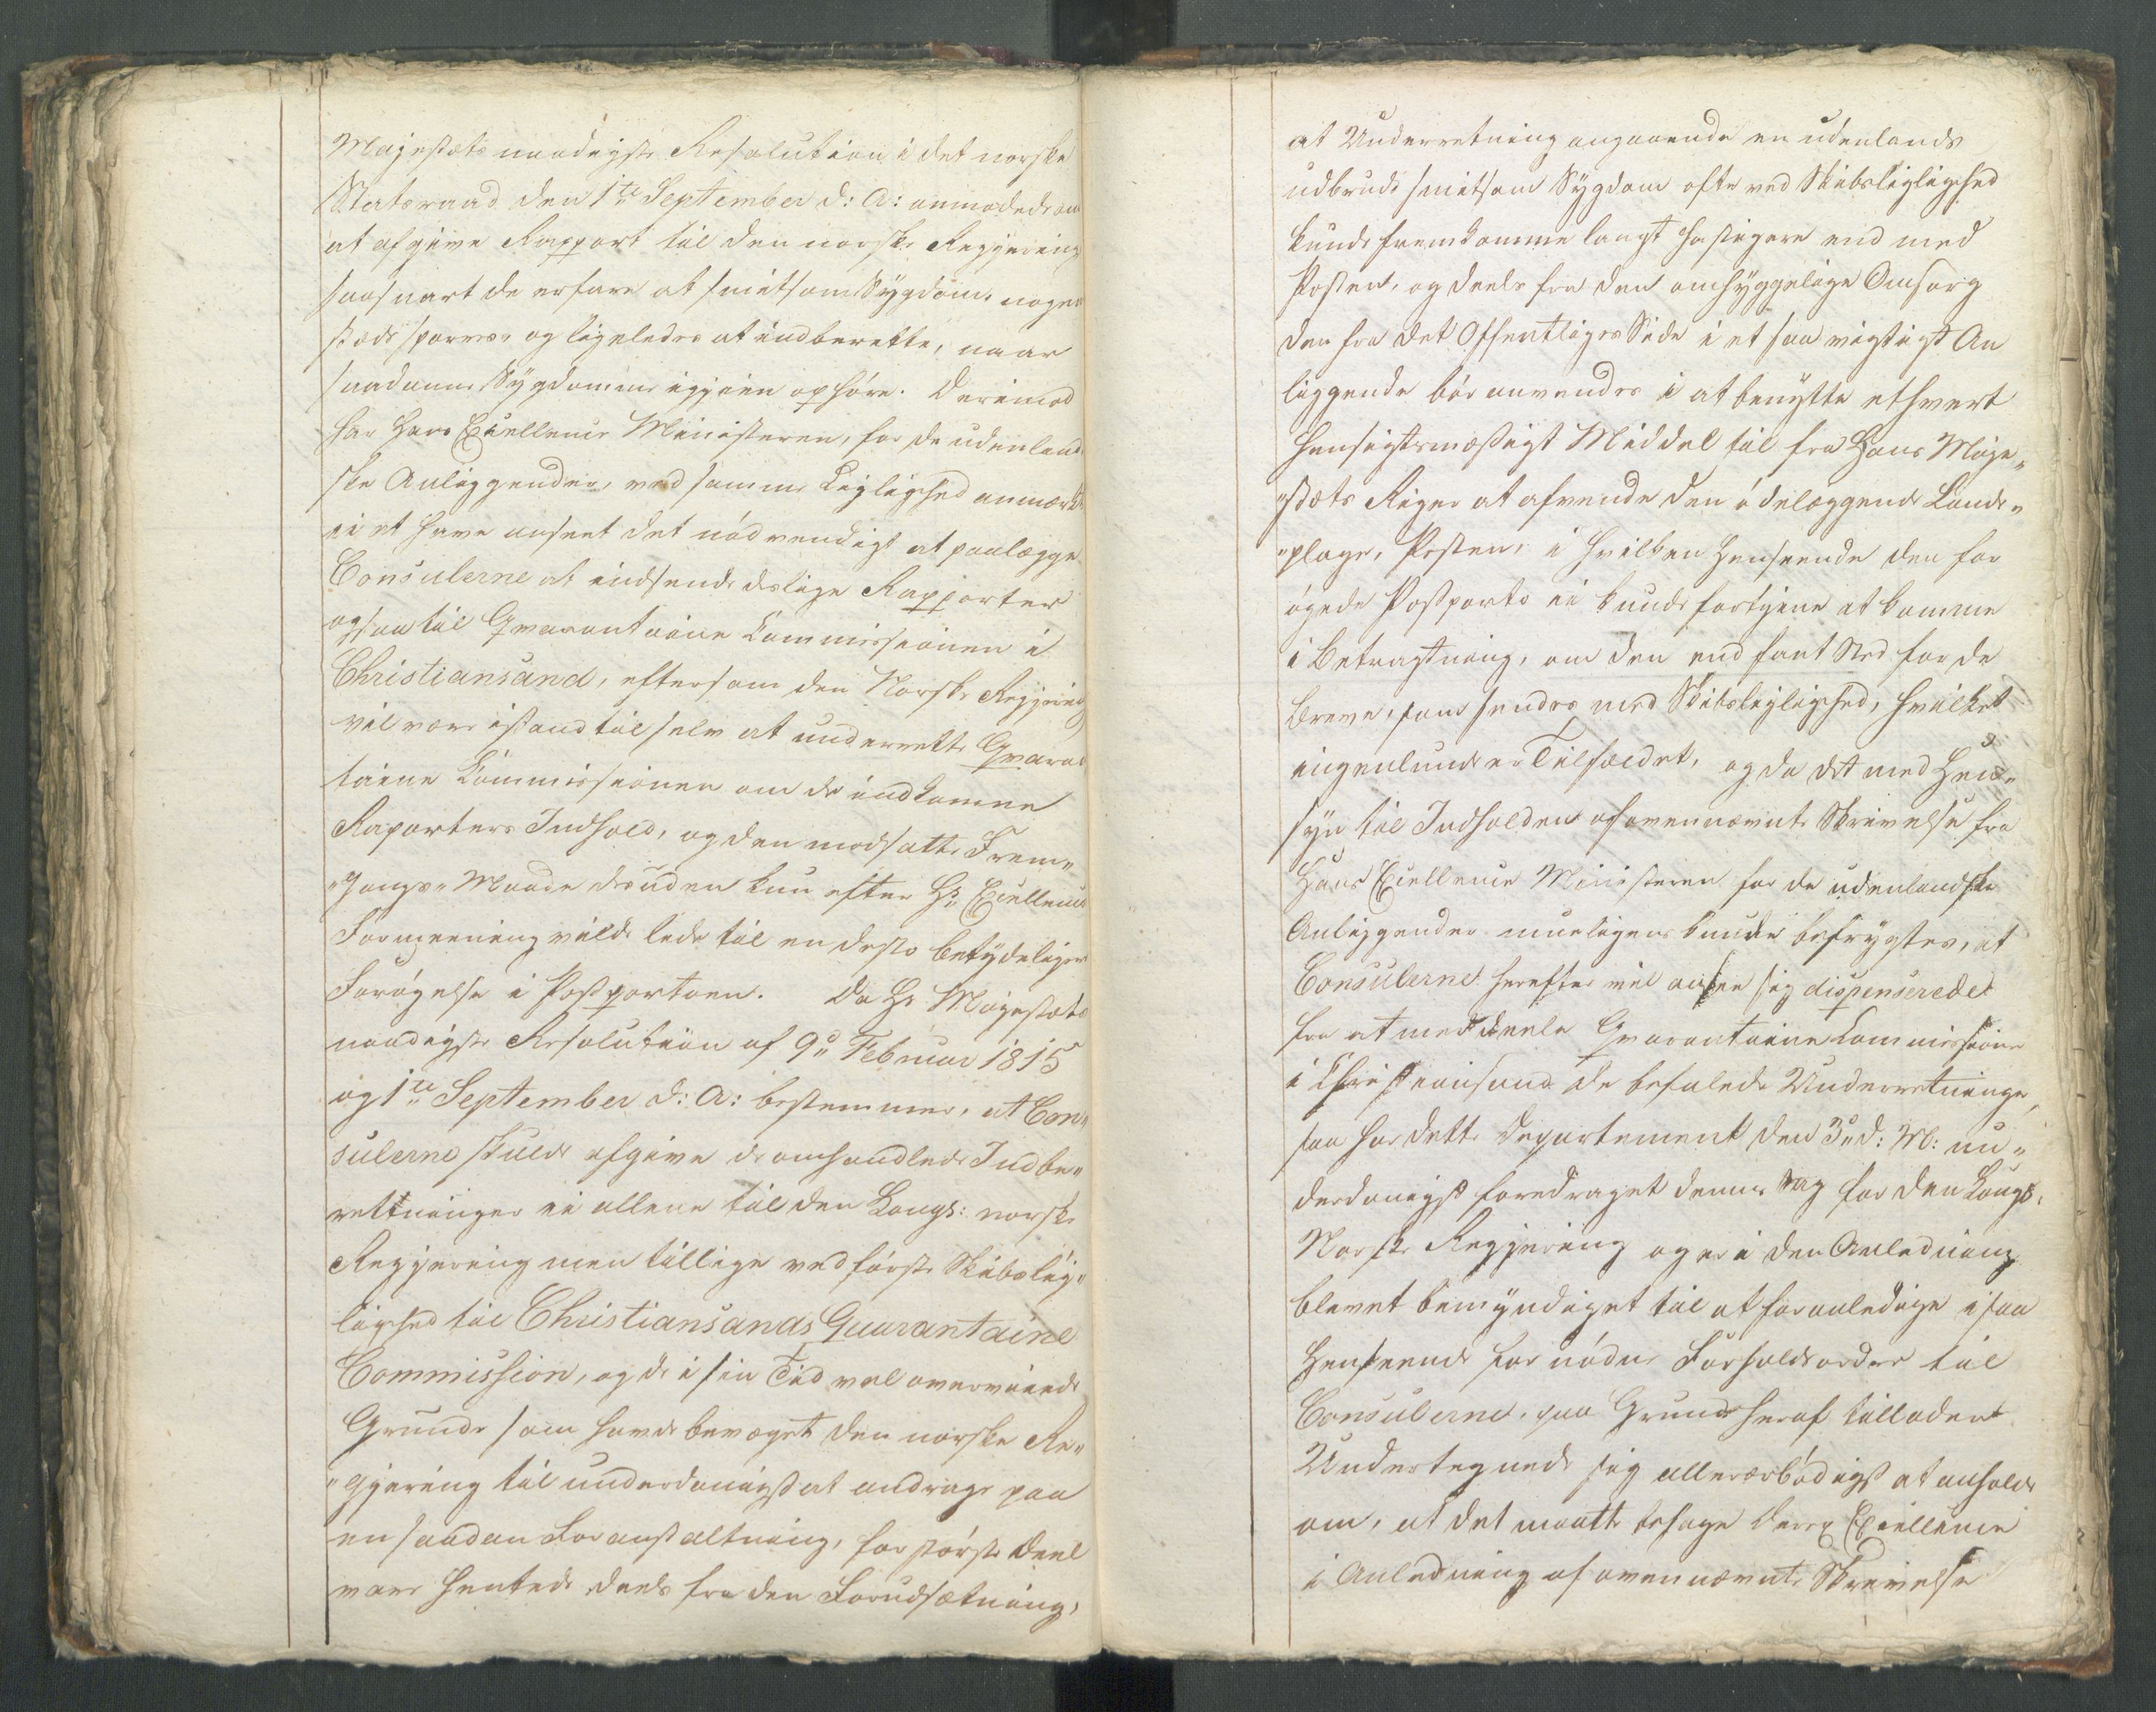 Majestæts naadigste Resolution i det norske
Statsraad den 1te September d: A: anmodede om
at afgive Rapport til den norske Regjering
saasnart de erfare at smitsom Sygdom, noget
steds spores, og ligeledes at indberette, naar
saadanne Sygdomme igjæen ophøre. Derimod
har Hans Excellence Ministeren, for de udenland
ske Anliggender, ved samme Leglighed anmærket
ei at have anseet det nödvendigt at paalægge
Consulerne at indsende deslige Rapporter
ogsaa til Qvarantaine Commissionen i
Christiansand, eftersom den Norske Regjering
vil være istand til selv at underrette Qvaran
taine Commissionen om de indkomne
Raporters Indhold, og den modsatte Frem„
„gangs„Maade desuden kun efter Hs Excellences
Formeening vilde lede til en desto betydeligere
Forøgelse i Postportoen. Da Hs Majestæts
naadigste Resolution af 9de Februar 1815
og 1te September d: A: bestemmer, at Con„
sulerne skulde afgive de omhandlede Indbe„
rettninger ei allene til den Kongl: norske
Regjering men tillige ved første Skibsleig„
lighed til Christiansands Quarantaine
Commission, og de i sin Tid vel overveiede
Grunde som havde bevæget den norske Re„
„gjering til underdanigst at andrage paa
en saadan Foranstaltning, for største Deel
vare hentede deels fra den Forudsætning,
at Underretning angaaende en udenlands
udbrudt smitsom Sygdom ofte ved Skibsleiglighed
kunde fremkomme langt hastigere end med
Posten, og deels fra den omhyggelige Omsorg
der fra det Offentliges Side i et saa vigtigt An
liggende bør anvendes i at benytte ethvert
hensigtsmæssigt Middel til fra Hans Maje„
„stæts Riger at afvende den ödelæggende Lande„
„plage, Pesten, i hvilken Henseende den for
øgede Postporto ei kunde fortjene at komme
i Betragtning, om den end fant Sted for de
Breve, som sendes med Skibsleiglighed, hvilket
ingenlunde er Tilfældet, og da det med Hen„
syn til Indholden af ovennævnte Skrivelse fra
Hans Excellence Ministeren for de udenlandske
Anliggender mueligens kunde befrygtes, at
Consulerne herefter vil ansee sig dispenserede
fra at meddeele Qvarantaine Commissione
i Christiansand de befalede Underretninger,
saa har dette Departement den 3de d: M: un„
derdanigst foredraget denne Sag for den Kongl.
Norske Regjering og er i den Anledning
blevet bemyndiget til at foranledige i saa
Henseende fornødne Forholdsordre til
Consulerne, paa Grund heraf tillader
Undertegnede sig allerærbödigst at anholde
om, at det maatte behage Deres Excellence
i Anledning af ovennævnte Skrivelse